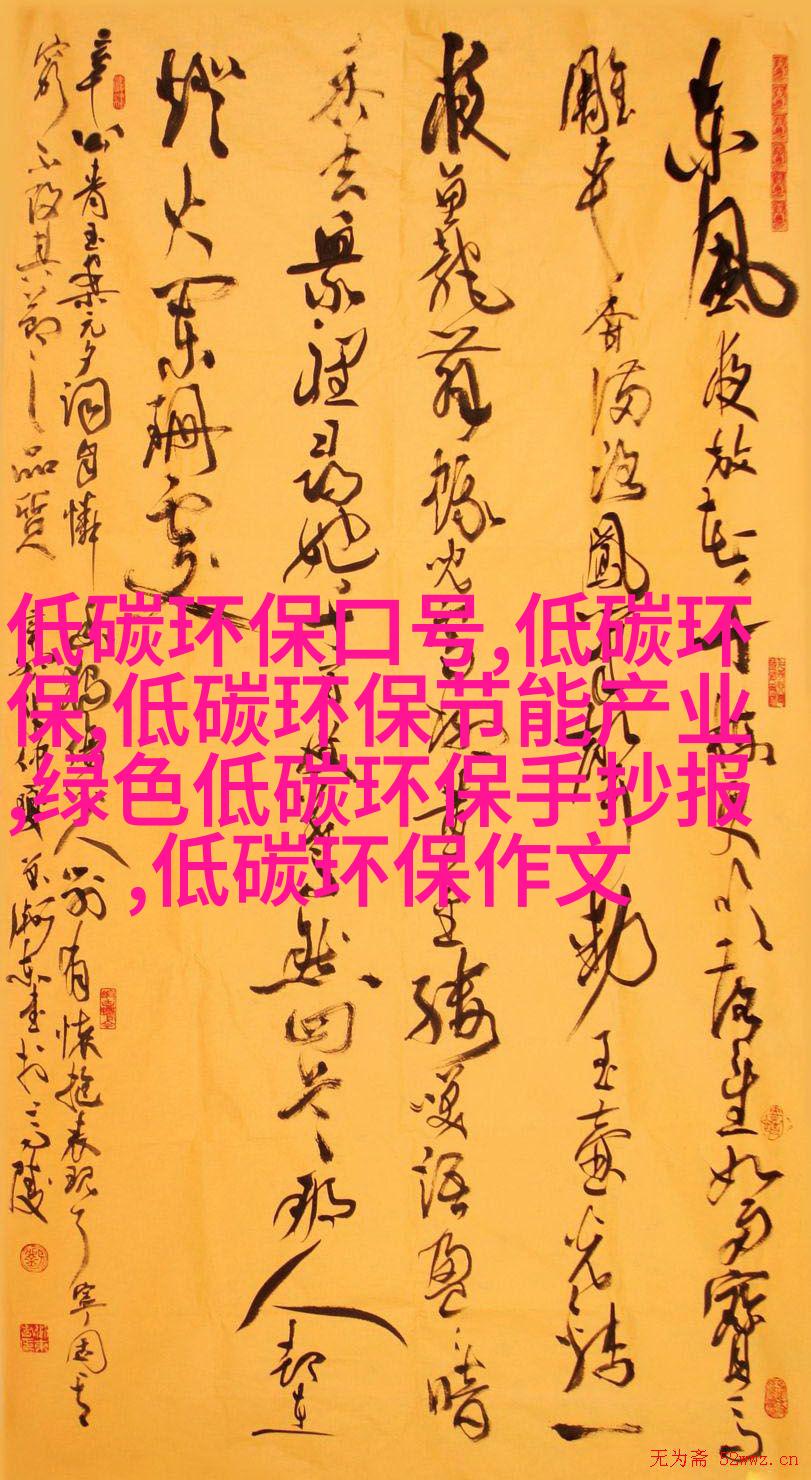 东风夜放花千树更吹落星如雨宝马
雕车香满路凤箫声动玉壶光转一
夜鱼龙舞蛾儿雪柳黄金缕笑语盈盈暗
香去众里寻他千百度蓦然回首那人却在
灯火阑珊处
辛公青玉案元夕词自怜幽独伤心人别有怀抱表现了宁固其
穷不改其节之品质
低碳环保口号,低碳环
保,低碳环保节能产业
,绿色低碳环保手抄报
,低碳环保作文
无为斋 52wwz.cn